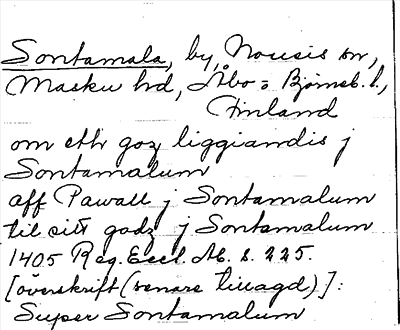 Sontamala, by, Nousis sn,
Masku hd, Åbo = Björneb. l.,
Finland
om eth goz liggiandis j
Sontamalum
aff Pawall j Sontamalum
til sitt godz j Sontamalum
1405 Reg. Eccl. Ab. s. 225.
[överskrift (senare tillagd)]:
Super Sontamalum